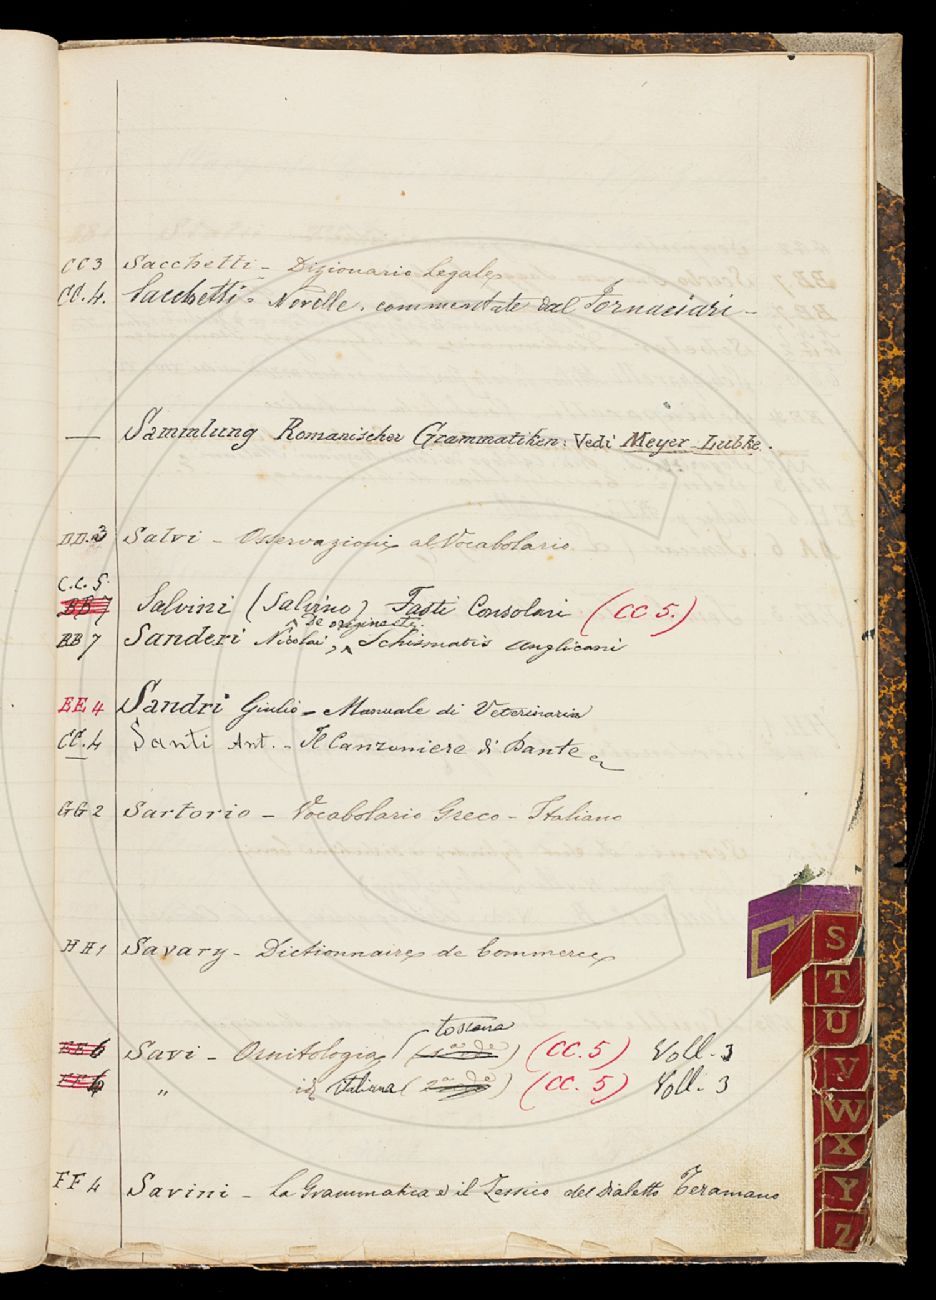 CC3 Sacchetti - Dizionario Legale
CC.4. Sacchetti - Novelle, commentate dal Fornaciari -
— Sammlung Romanischer Grammatiken: Vedi Meyer-Lubke.
DD.3 Salvi - Osservazioni al Vocabolario
C.C. 5.
BB 7 Salvini (Salvino) Fasti Consolari (CC 5.)
De origine et
BB 7 Sanderi Nicolai, Schismatis Anglicani
EE 4 Sandri Giulio - Manuale di Veterinaria
CC.4 Santi Ant. - Il Canzoniere di Dante
GG 2 Sartorio - Vocabolario Greco - Italiano
HH 1 Savary - Dictionnaire de Commerce
toscana
EE 6 Savi - Ornitologia (1a da) (CC. 5) Voll. 3
6 " id Italiana (2a da) (CC. 5) Voll. 3
FF 4 Savini - La Grammatica e il Lessico del dialetto Teramano
S
T
U
V
W
X
Y
Z